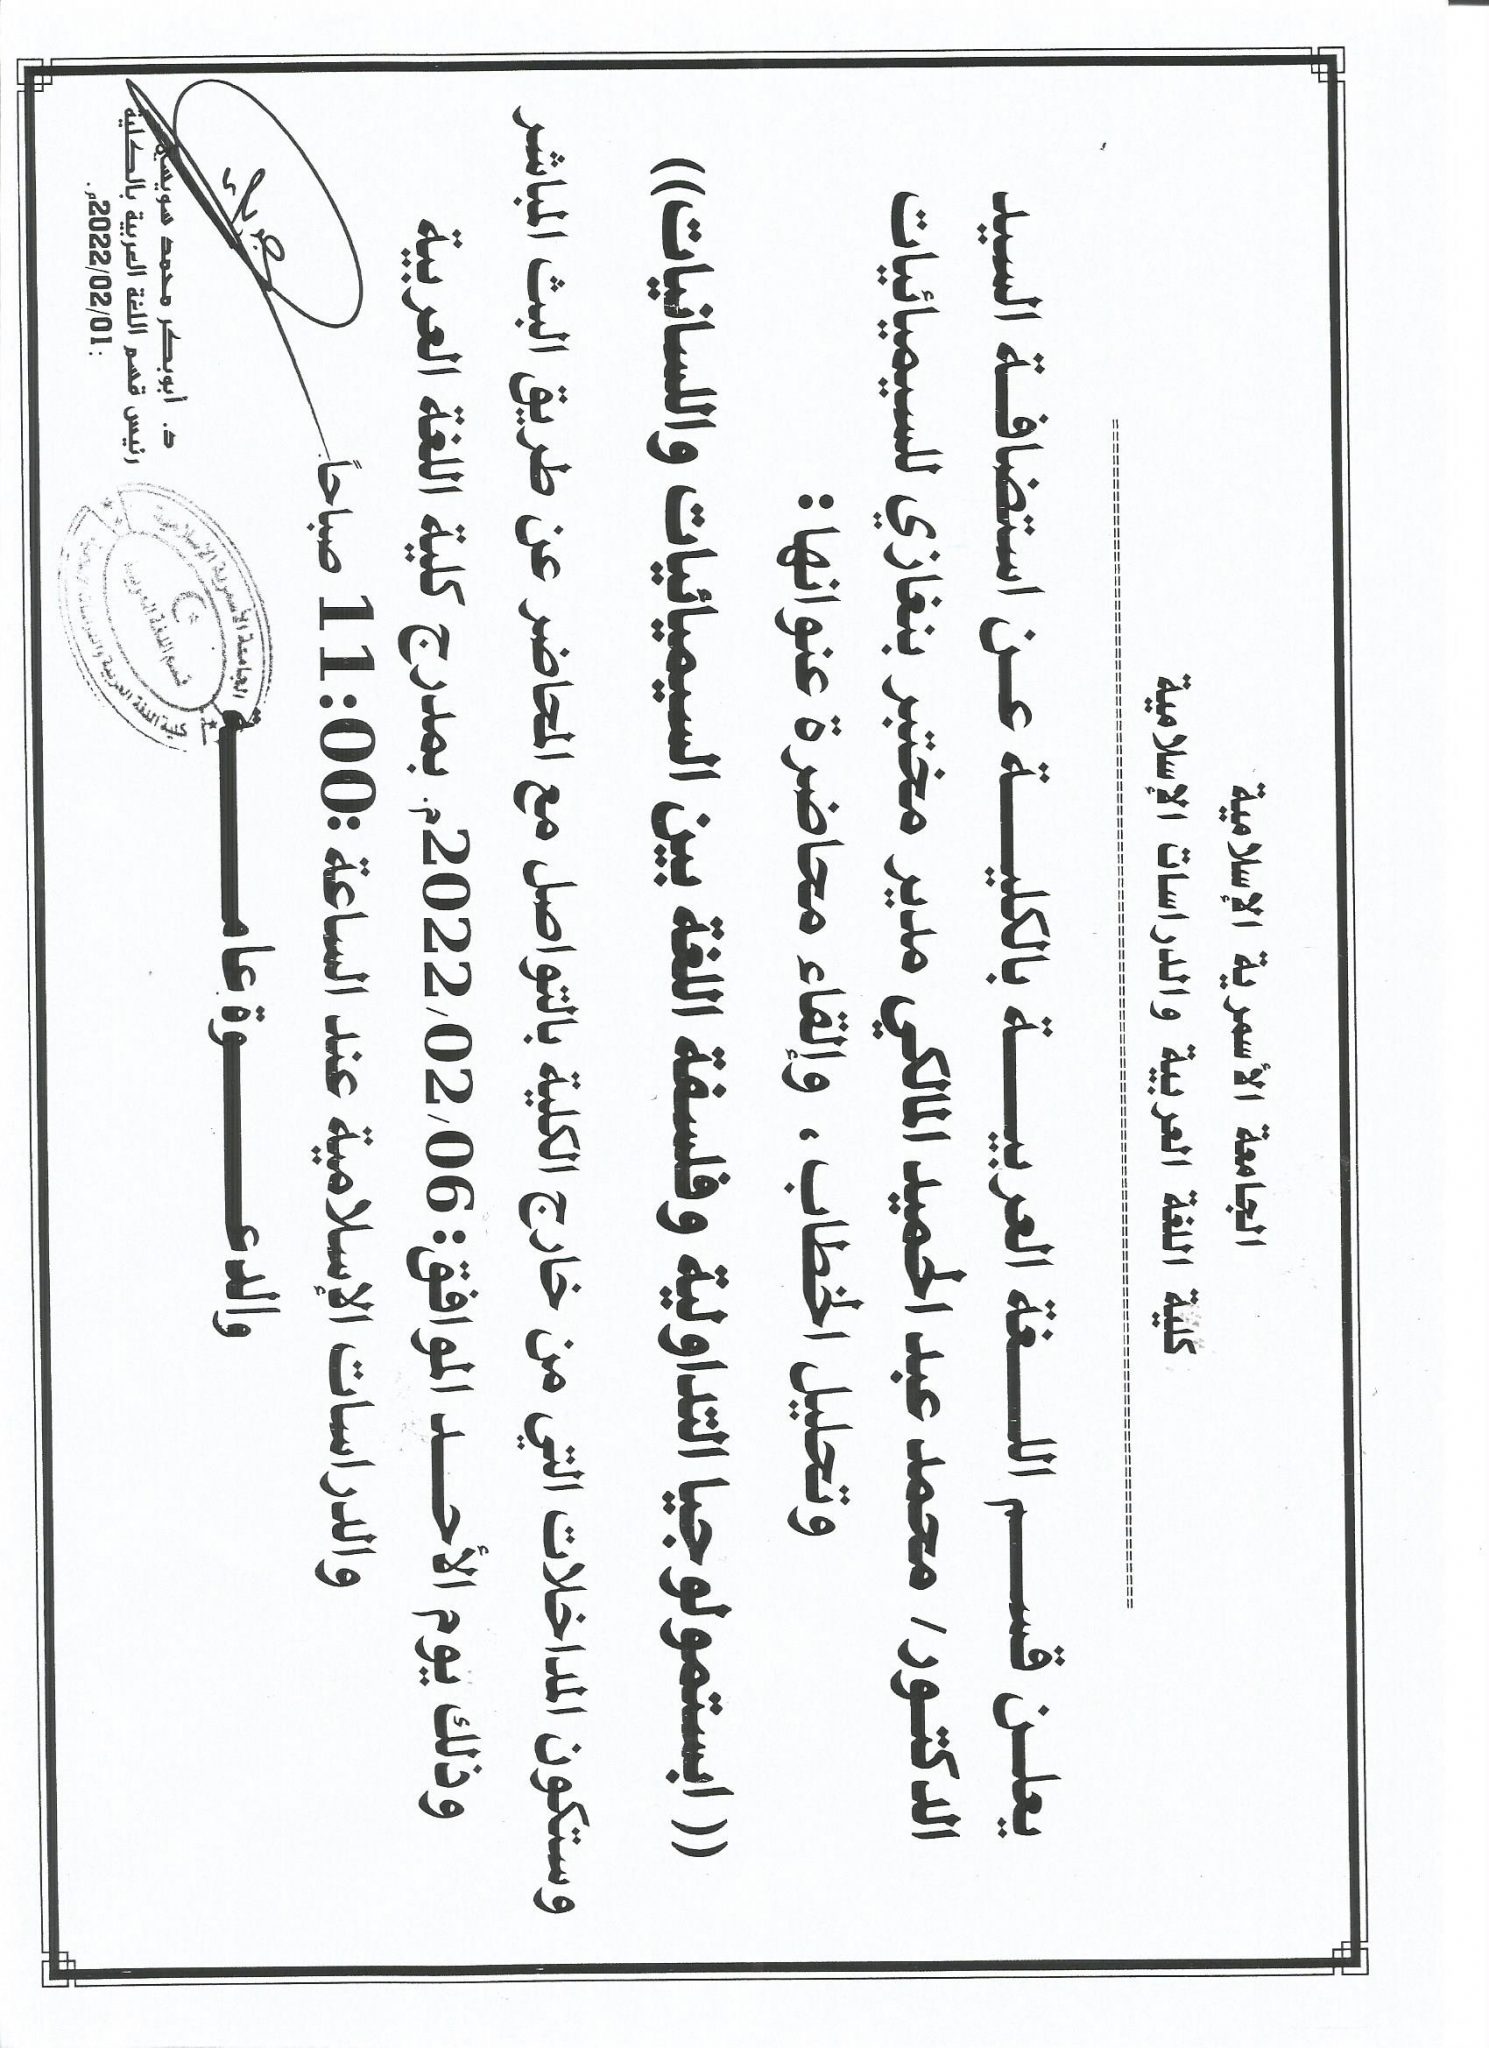 الجامعة الأسمرية الإسلامية
كلية اللغة العربية والدراسات الإسلامية
يعلن قسم اللغة العربية بالكلية عن استضافة السيد
الدكتور/ محمد عبد الحميد المالكي مدير مختبر بنغازي للسيميائيات
وتحليل الخطاب ، وإلقاء محاضرة عنوانها:
(( ابستمولوجيا التداولية وفلسفة اللغة بين السيميائيات واللسانيات))
وستكون المداخلات التي من خارج الكلية بالتواصل مع المحاضر عن طريق البث المباشر
وذلك يوم الأحد الموافق: 2022/02/06م. بمدرج كلية اللغة العربية
والدراسات الإسلامية عند الساعة :11:00 صباحاً.
والدعوة عامة
د. أبوبكر محمد سويسي
رئيس قسم اللغة العربية بالكلية
:2022/02/01م.
الجامعة الأسمرية الإسلامية
قسم اللغة العربية
كلية اللغة العربية والدراسات